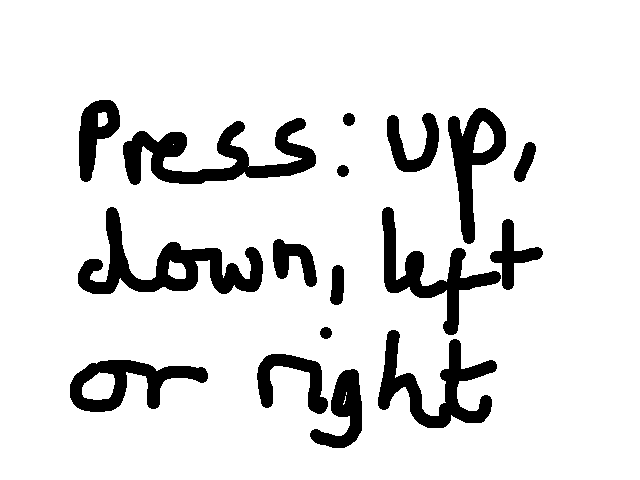 Press: up,
down, left
or right